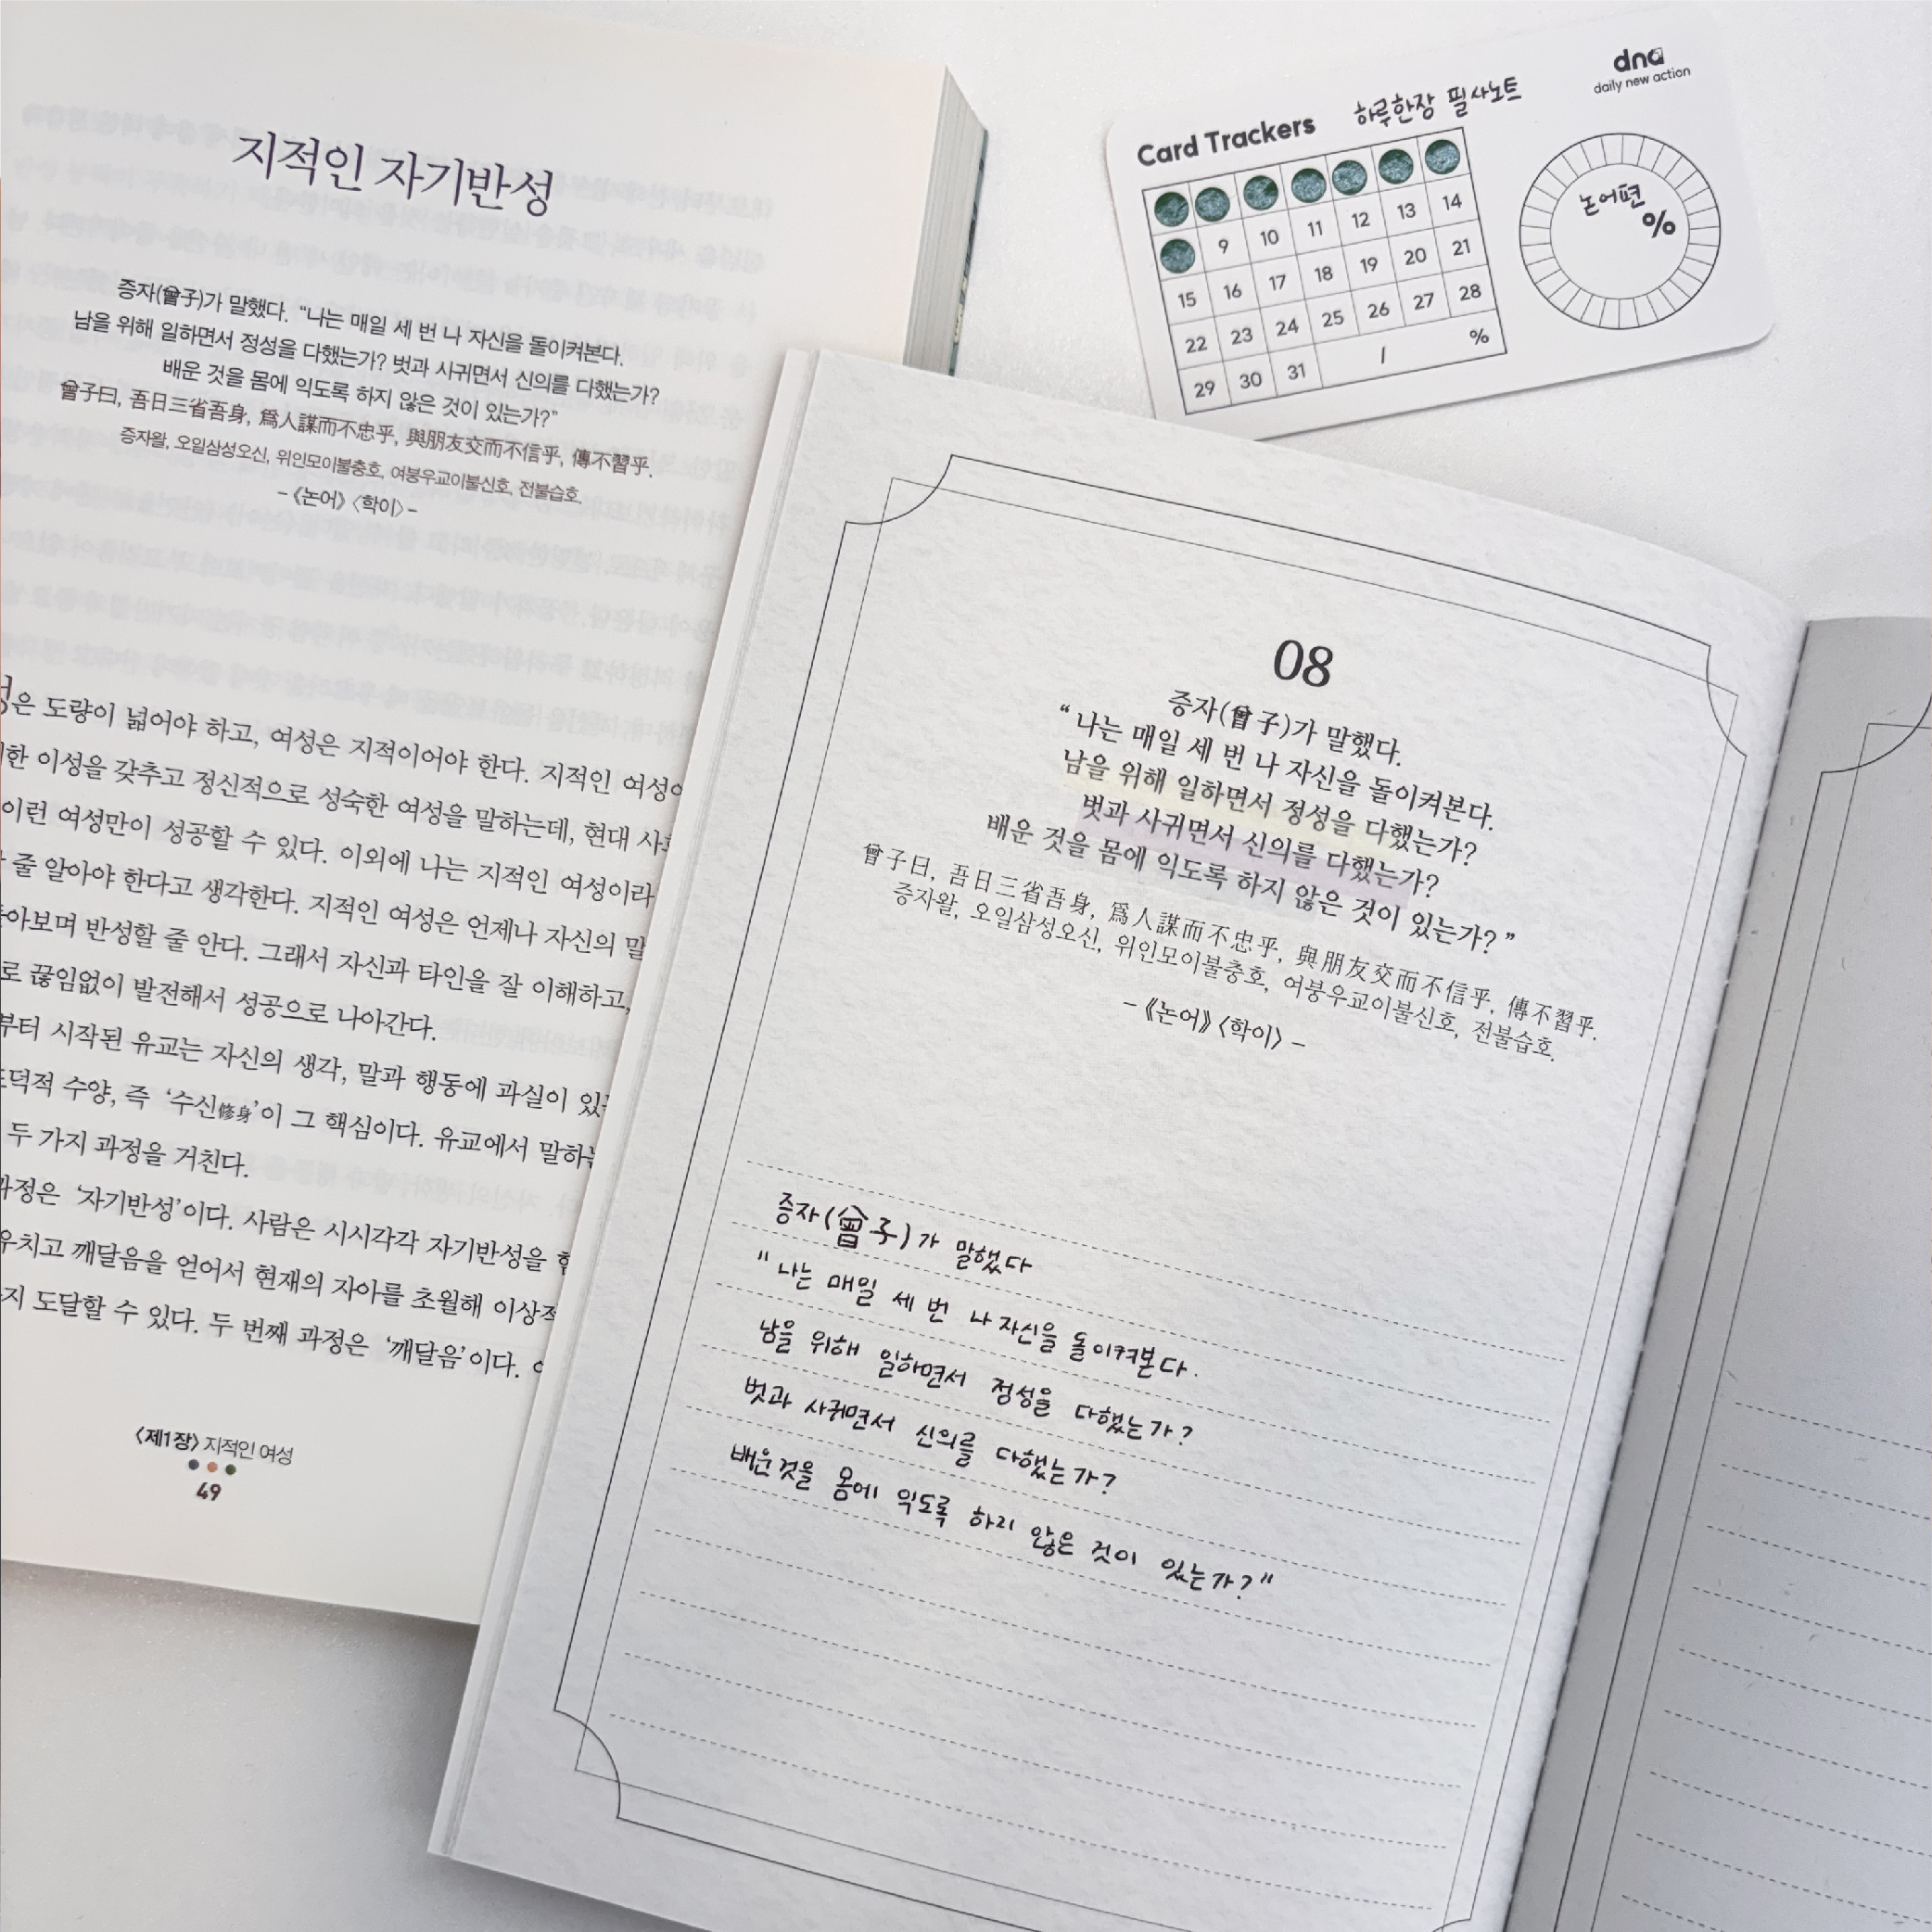 지적인 자기반성
증자(曾子)가 말했다. “나는 매일 세 번 나 자신을 돌이켜본다.
남을 위해 일하면서 정성을 다했는가? 벗과 사귀면서 신의를 다했는가?
배운 것을 몸에 익도록 하지 않은 것이 있는가?”
曾子曰, 吾日三省吾身, 爲人謀而不忠乎, 與朋友交而不信乎, 傳不習乎.
증자왈, 오일삼성오신, 위인모이불충호, 여붕우교이불신호, 전불습호.
-《논어》〈학이〉-
은 도량이 넓어야 하고, 여성은 지적이어야 한다. 지적인
한 이성을 갖추고 정신적으로 성숙한 여성을 말하는데, 현대
이런 여성만이 성공할 수 있다. 이외에 나는 지적인 여성이라
줄 알아야 한다고 생각한다. 지적인 여성은 언제나 자신의 말
돌아보며 반성할 줄 안다. 그래서 자신과 타인을 잘 이해하고,
로 끊임없이 발전해서 성공으로 나아간다.
부터 시작된 유교는 자신의 생각, 말과 행동에 과실이
도덕적 수양, 즉 ‘수신修身’이 그 핵심이다. 유교에서
두 가지 과정을 거친다.
과정은 ‘자기반성’이다. 사람은 시시각각 자기반성을
우치고 깨달음을 얻어서 현재의 자아를 초월해
지 도달할 수 있다. 두 번째 과정은 ‘깨달음’이다.
〈제1장〉 지적인 여성
49
dna
daily new action
Card Trackers 하루한장 필사노트
9 10 11 12 13 14
15 16 17 18 19 20 21
22 23 24 25 26 27 28
29 30 31 / %
논어편
%
08
증자(曾子)가 말했다.
“나는 매일 세 번 나 자신을 돌이켜본다.
남을 위해 일하면서 정성을 다했는가?
벗과 사귀면서 신의를 다했는가?
배운 것을 몸에 익도록 하지 않은 것이 있는가?”
曾子曰, 吾日三省吾身, 爲人謀而不忠乎, 與朋友交而不信乎, 傳不習乎.
증자왈, 오일삼성오신, 위인모이불충호, 여붕우교이불신호, 전불습호.
-《논어》〈학이〉-
증자(曾子)가 말했다
"나는 매일 세 번 나 자신을 돌이켜본다.
남을 위해 일하면서 정성을 다했는가?
벗과 사귀면서 신의를 다했는가?
배운것을 몸에 익도록 하지 않은 것이 있는가?"